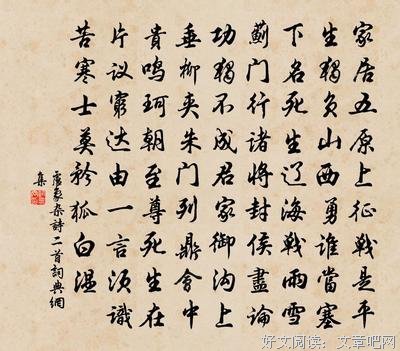 家居五原上征戰是平
生獨负山西勇誰當塞
下名死生辽海戰雨雪
薊门行诸将封侯盡論
功獨不成君家御沟上
垂柳夹朱门列鼎會中
貴鸣珂朝至尊死生在
片议窮达由一言须識
苦寒士莫矜狐白温
盧象杂詩二首詞典網
集
好文阅读：文章吧网